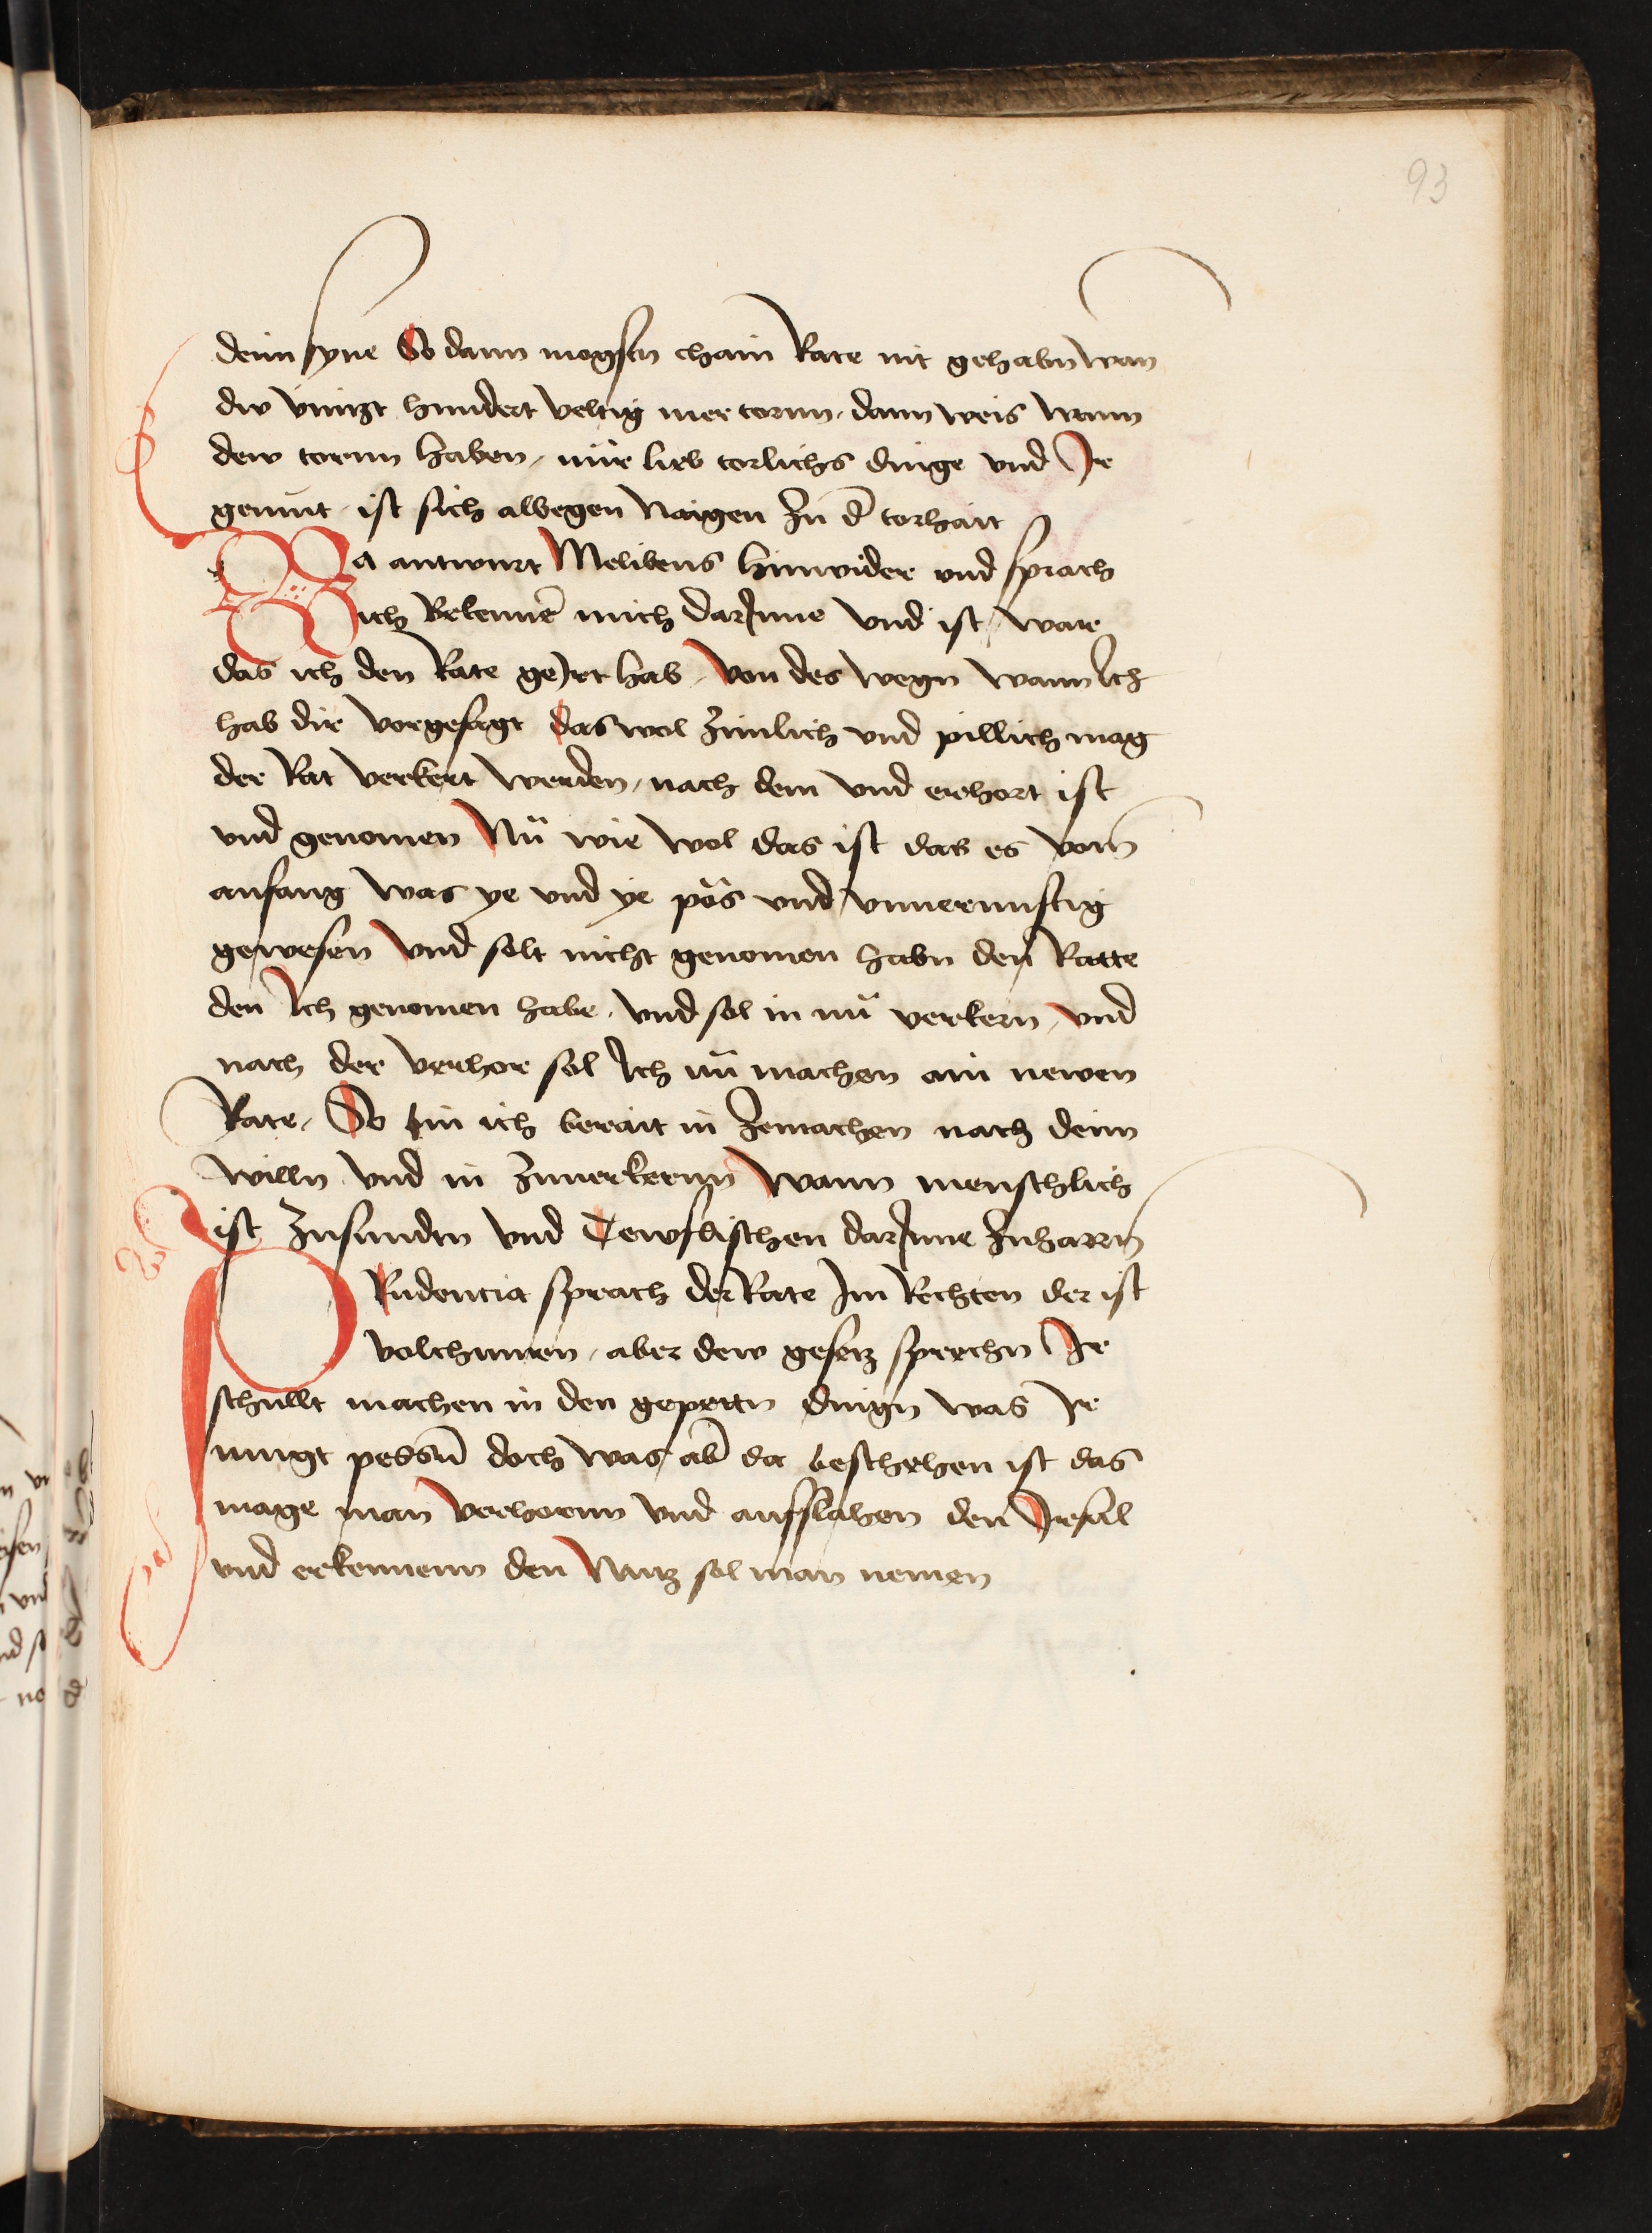 93
deim syne So dann mogstu chain Rate nit gehabn wan
du vinczt hundert veltig mer tornn, dann weis wann
dew tornn haben, nür lieb torlichs dinge vnd Ir
gemüt ist sich albegen naigen Zu d̄ torhait
Da antwurt Melibeus hinwider vnd sprach
ich Bekenne mich darInne vnd ist, ware
das ich den Rate geJrrt hab, von des wegn wann Ich
hab dir vorgesagt das wol Zimlich vnd pillich mag
der Rat verkert werden, nach dem vnd er ist
vnd genomen Nü wie wol das ist das es vom
anfang was ye vnd ye pös vnd vnuernuftig
gewesen vnd solt nicht genomen habn den Ratte
den Ich genomen habe, vnd sol in nü verkern, vnd
nach der verhor sol Ich nü machen ain newen
Rate, So pin ich berait in Zemachen nach deim
willn vnd in Zuuerkernn wann menschlich
ist Zusundtn vnd Tewflischen darInne Zuharrn
PRudentia sprach der Rate Im Rechten der ist
volchumen, aber dew gesetz sprechn Ir
schullt machen in den dingn was Ir
mugt pessers doch was ab̄ da beschehen ist das
mage man verhornn vnd aufslahen den Irsal
vnd erkennenn den Nutz sol man nemen